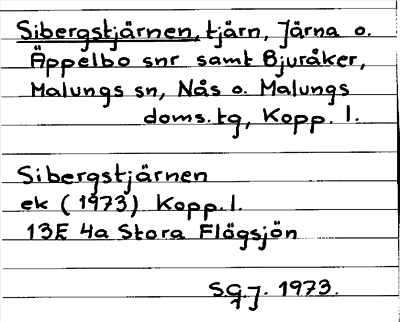 Sibergstjärnen, tjärn, Järna o.
Äppelbo snr samt Bjuråker,
Malungs sn, Nås o. Malungs
doms. tg, Kopp. l.
Sibergstjärnen
ek (1973) Kopp. l.
13E 4a Stora Flögsjön
SGJ. 1973.